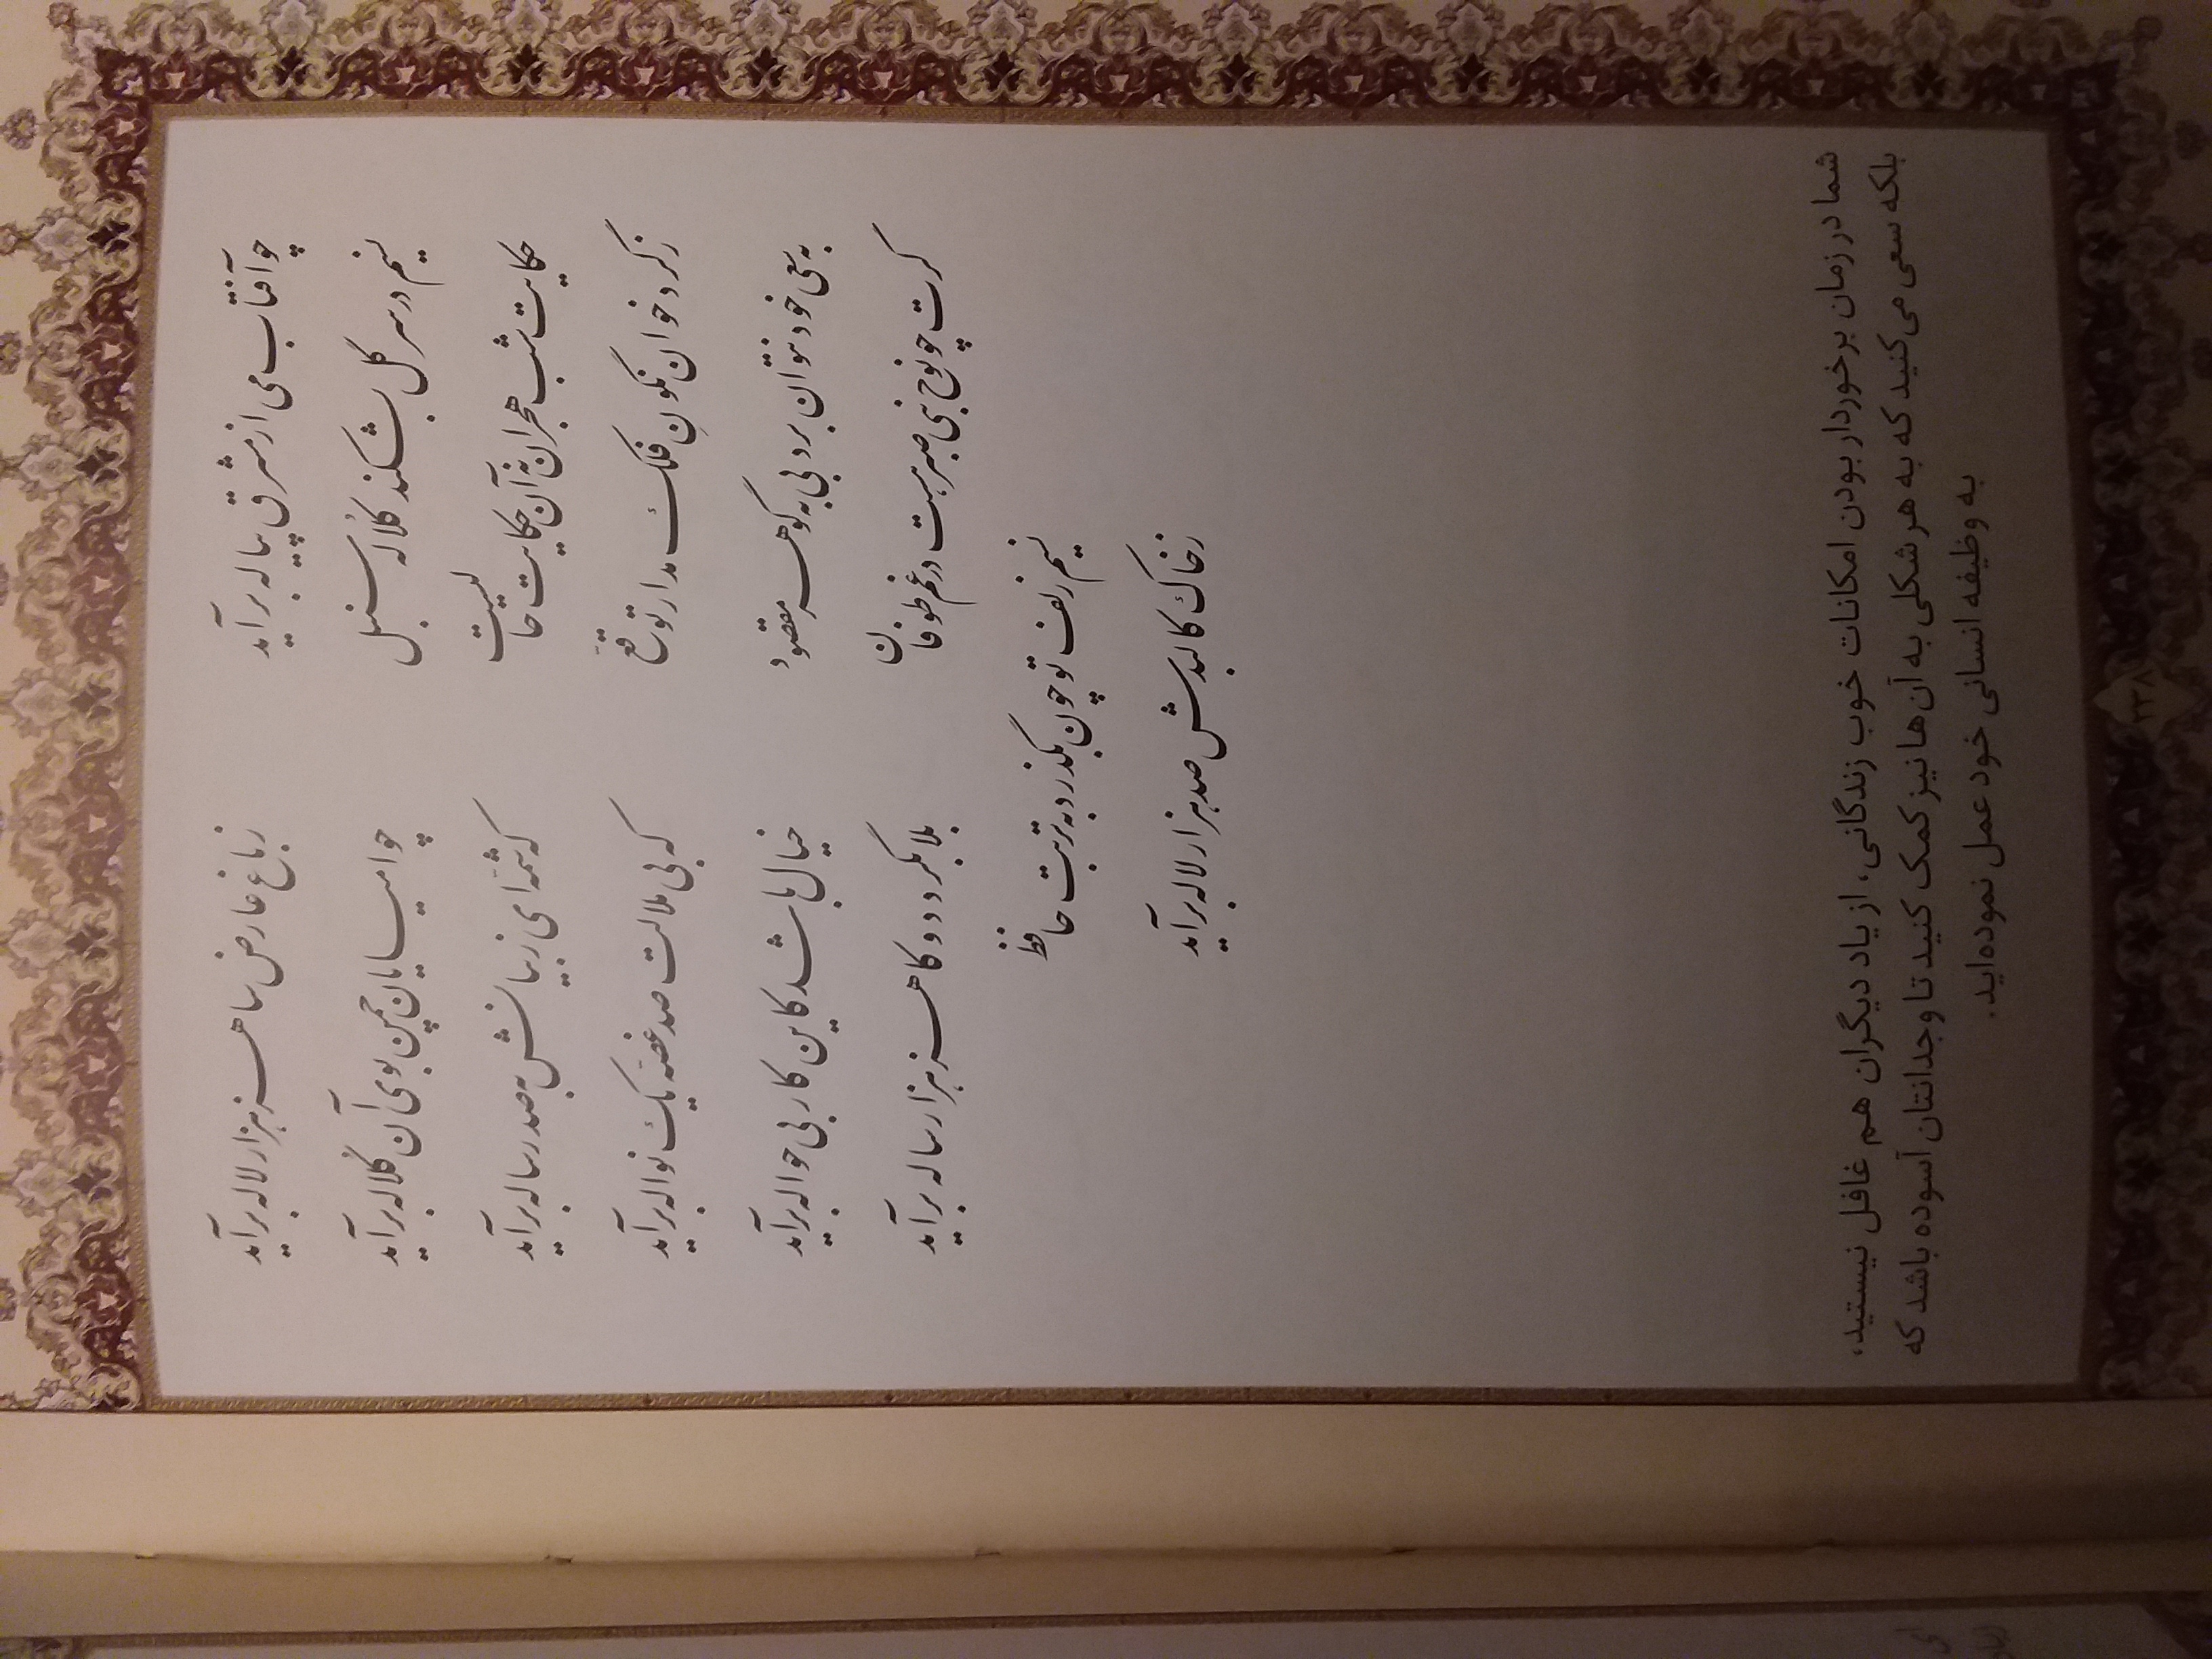 چو آفتاب می از مشرق پیاله برآید
ز باغ عارض ساقی هزار لاله برآید
نسیم در سر گل بشکند کلاله سنبل
چو از میان چمن بوی آن کلاله برآید
حکایت شب هجران نه آن حکایت حالیست
که شمه‌ای ز بیانش به صد رساله برآید
ز گرد خوان نگون فلک مدار توقع
که بی ملالت صد غصه یک نواله برآید
به سعی خود نتوان برد پی به گوهر مقصود
خیال باشد کاین کار بی حواله برآید
گرت چو نوح نبی صبر هست در غم طوفان
بلا بگردد و کام هزار ساله برآید
نسیم زلف تو چون بگذرد به تربت حافظ
ز خاک کالبدش صد هزار لاله برآید
شما در زمان برخوردار بودن امکانات خوب زندگانی، از یاد دیگران هم غافل نیستید،
بلکه سعی می کنید که به هر شکلی به آن ها نیز کمک کنید تا وجدانتان آسوده باشد که
به وظیفه انسانی خود عمل نموده‌اید.